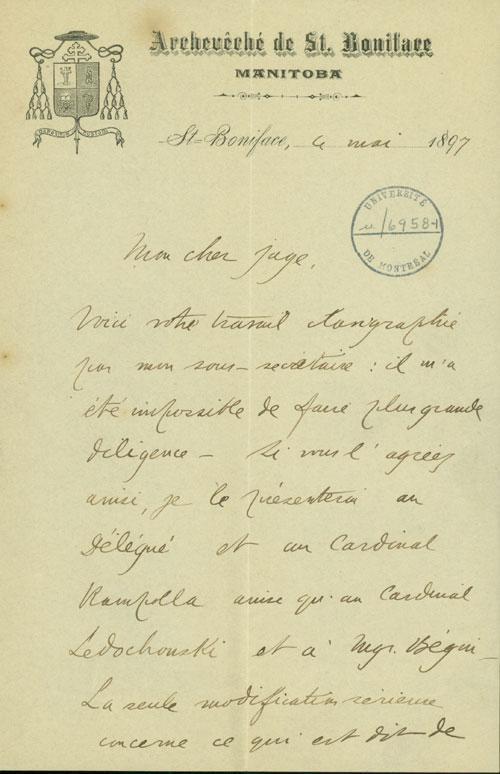 Archevêché de St. Boniface
MANITOBA
St-Boniface, mai 1897
UNIVERSITÉ
69584
DE MONTRÉAL
Mon cher juge,
Voici votre travail
par mon sous-secrétaire : il m'a
été impossible de faire plus grande
diligence - Si vous l'agréez
ainsi, je le présenterai au
Délégué et au Cardinal
Rampolla ainsi qu'au Cardinal
Ledochowski et à Mgr. Bégin -
La seule modification sérieuse
concerne ce qui est dit de